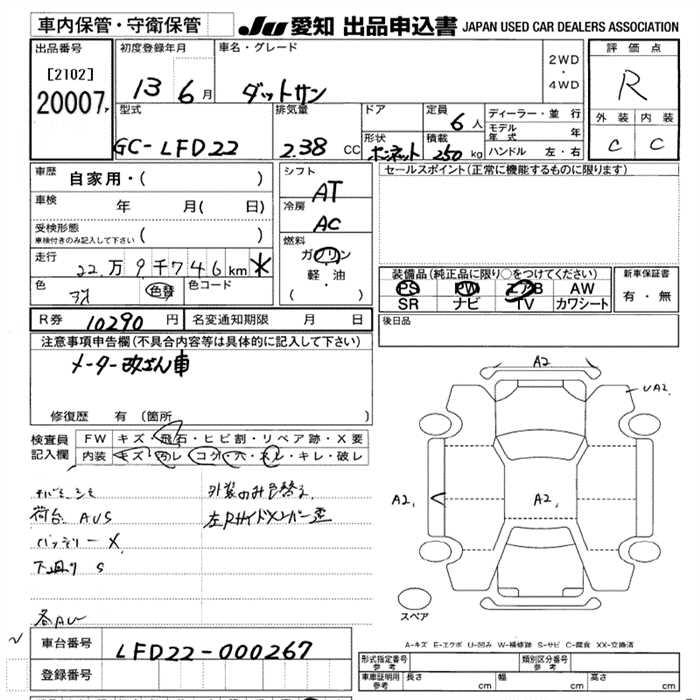 車内保管・守衛保管
JU 愛知 出品申込書 JAPAN USED CAR DEALERS ASSOCIATION
出品番号
[2102]
20007
初度登録年月
13 6月
車名・グレード
ダットサン
2WD
・
4WD
評価点
R
外装 内装
C C
型式
GC-LFD22
排気量
2.38 CC
ドア
形状
ボンネット
定員
6人
積載
250 kg
ディーラー・並行
モデル年式 年
ハンドル 左・右
車歴 自家用・( )
車検 年 月( 日)
受検形態
車検付きのみ記入して下さい ( )
走行 22万9千746km
色
色替
色コード
シフト
AT
冷房
AC
燃料
ガソリン
軽・油
( )
セールスポイント(正常に機能するものに限ります)
装備品(純正品に限り○をつけてください)
PS PW エアB AW
SR ナビ TV カワシート
新車保証書
有・無
R券 10290円
名変通知期限 月 日
後日品
注意事項申告欄(不具合内容等は具体的に記入して下さい)
メーター改ざん車
修復歴 有 (箇所 )
検査員
記入欄
FW キズ・飛石・ヒビ割・リペア跡・X要
内装 キズ・汚レ・コゲ・穴・スレ・キレ・破レ
外装のみ色替え
荷台 AUS
バッテリーX
左Rサイドメンバー歪
下廻り S
各AU
A2
UA2
A2
A2
A2
スペア
A-キズ E-エクボ U-凹み W-補修跡 S-サビ C-腐食 XX-交換済
車台番号 LFD22-000267
登録番号
形式指定番号
参考
類別区分番号
参考
車庫証明用
参考
長さ cm 幅 cm 高さ cm